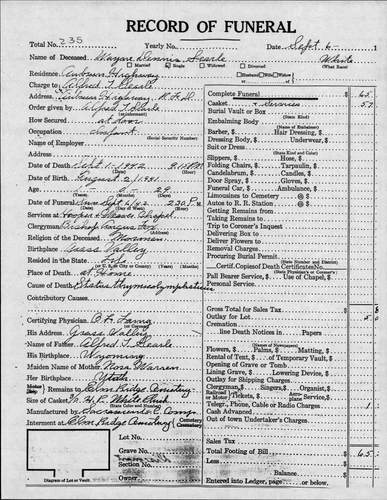 RECORD OF FUNERAL
Total No. 235 Yearly No. Date Sept. 6- 1
Name of Deceased Wayne Dennis Searle White
Married Single Widowed Divorced (What Race)
Residence Auburn Highway Husband Wife Widow of
Charge to Alfred T. Searle
Address Auburn Highway R.F.D.
Order given by Alfred T. Searle
(or informant)
How Secured at town
Occupation infant
(Social Security Number)
Name of Employer
Address
Date of Death Sept 1-1942 9:15 P.M.
Date of Birth August 2, 1941
Age 29
(Years) (Months) (Days)
Date of Funeral Sun Sept 6/42 2:30 P.M.
Services at Hooper & Weaver Chapel
Clergyman Bishop
Religion of the Deceased Mormon
Birthplace Grass Valley
Resided in the State Life
Place of Death at Home
Cause of Death Status Thymicolymphaticus
Contributory Causes
Certifying Physician
His Address Grass Valley
Name of Father Alfred T. Searle
His Birthplace Wyoming
Maiden Name of Mother Nora Warren
Her Birthplace Utah
Motor Remains to Elm Ridge Cemetery
Size of Casket White Plush
(State Color and Number)
Manufactured by Sacramento C. Comp.
Interment at Elm Ridge Cemetery
Lot No.
Grave No.
Section No.
Owner
Diagram of Lot or Vault
Complete Funeral 65
& Services 57
Burial Vault or Box
(State Kind)
Embalming Body
(Name of Embalmer)
Barber, $ Hair Dressing, $
Dressing Body, $ Underwear, $
Suit or Dress
(State Kind and Color)
Slippers, $ Hose, $
Folding Chairs, $ Tarpaulin, $
Candelabrum, $ Candles, $
Door Spray, $ Gloves, $
Funeral Car, $ Ambulance, $
Limousines to Cemetery @ $
Autos to R. R. Station @ $
Getting Remains from
Taking Remains to
Trip to Coroner's Inquest
Delivering Box to
Deliver Flowers to
Removal Charges
Procuring Burial Permit
(State Number and District)
Certif. Copies of Death Certificates No.
(State Physician's or Coroner's)
Pall Bearer Service, $ Use of Chapel, $
Personal Service
Gross Total for Sales Tax
Outlay for Lot 5
Cremation
line Death Notices in Papers
Flowers, $ Palms, $ Matting, $
Rental of Tent, $ of Temporary Vault, $
Opening of Grave or Tomb
Lining Grave, $ Lowering Device, $
Outlay for Shipping Charges
Clergyman, $ Singers, $ Organist, $
Telegr., Phone, Cable or Radio Charges 1
Cash Advanced
Out of town Undertaker's Charges
Sales Tax
Total Footing of Bill 65
Less
Balance
Entered into Ledger, page or below.